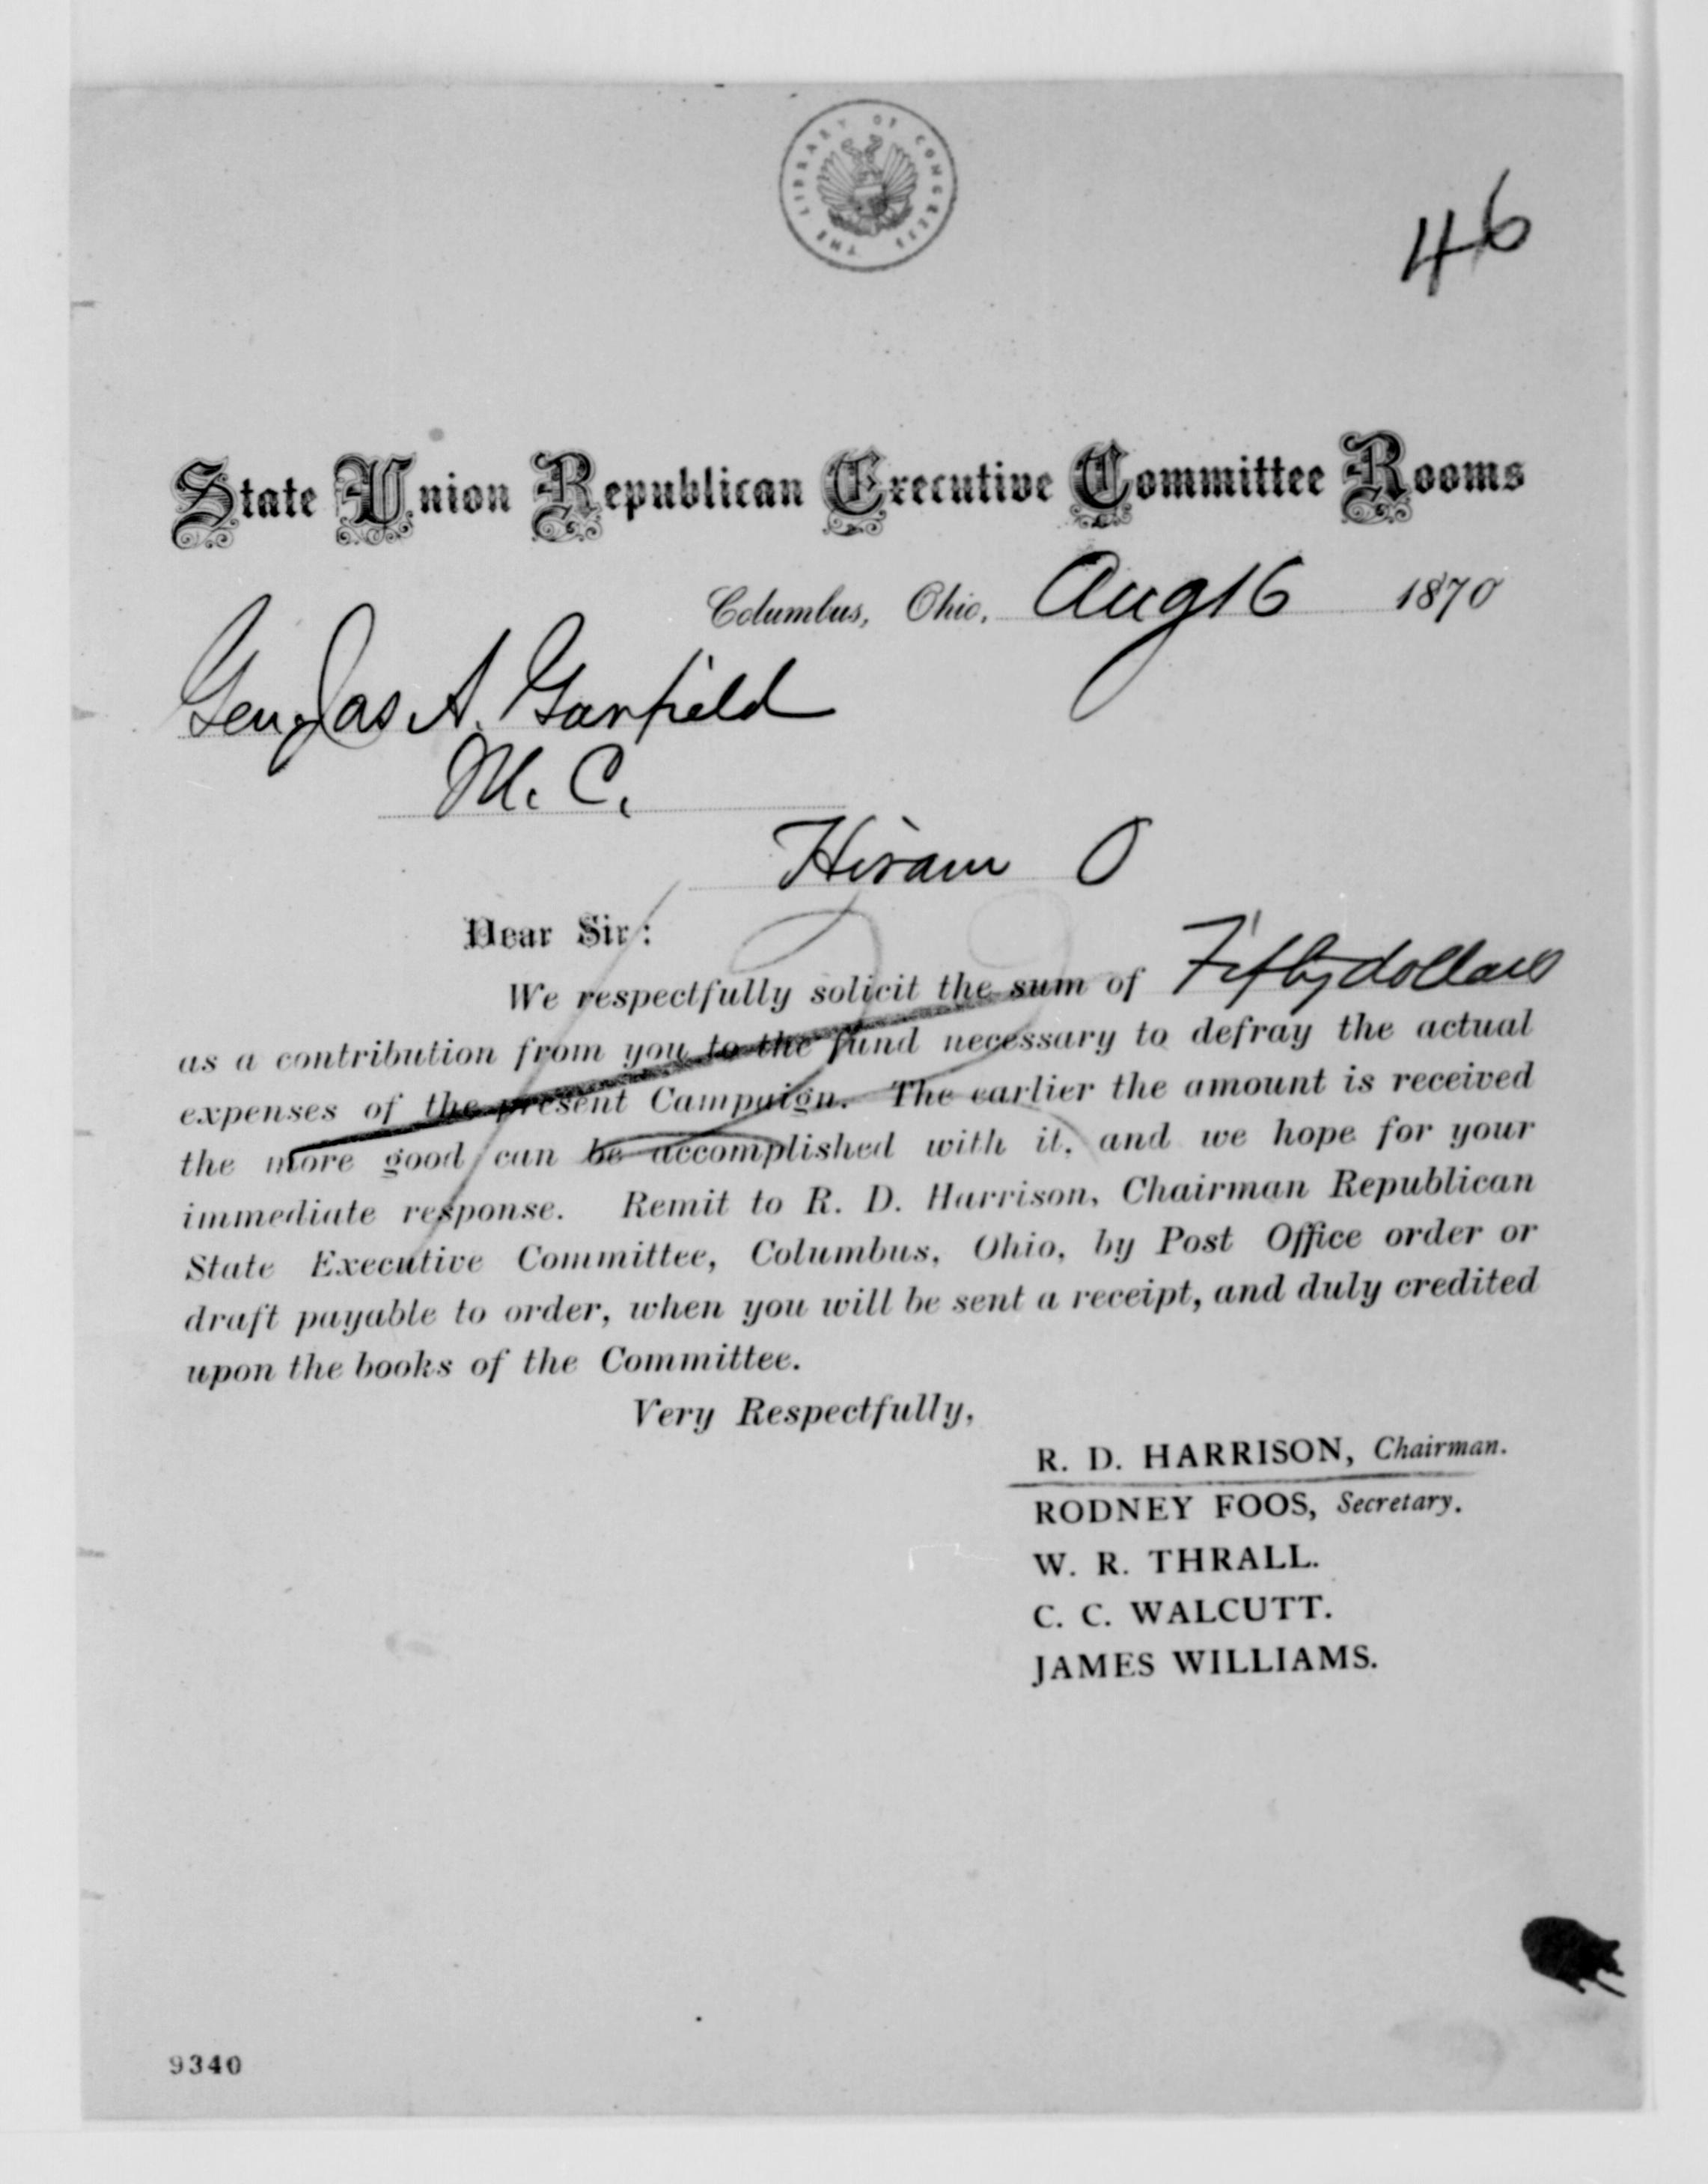 THE LIBRARY OF CONGRESS
46
State Union Republican Executive Committee Rooms
Columbus, Ohio, Aug 16 1870
Gen Jas A. Garfield
M. C.
Hiram O
Dear Sir:
We respectfully solicit the sum of Fifty dollars
as a contribution from you to the fund necessary to defray the actual
expenses of the present Campaign. The earlier the amount is received
the more good can be accomplished with it, and we hope for your
immediate response. Remit to R. D. Harrison, Chairman Republican
State Executive Committee, Columbus, Ohio, by Post Office order or
draft payable to order, when you will be sent a receipt, and duly credited
upon the books of the Committee.
Very Respectfully,
R. D. HARRISON, Chairman.
RODNEY FOOS, Secretary.
W. R. THRALL.
C. C. WALCUTT.
JAMES WILLIAMS.
9340